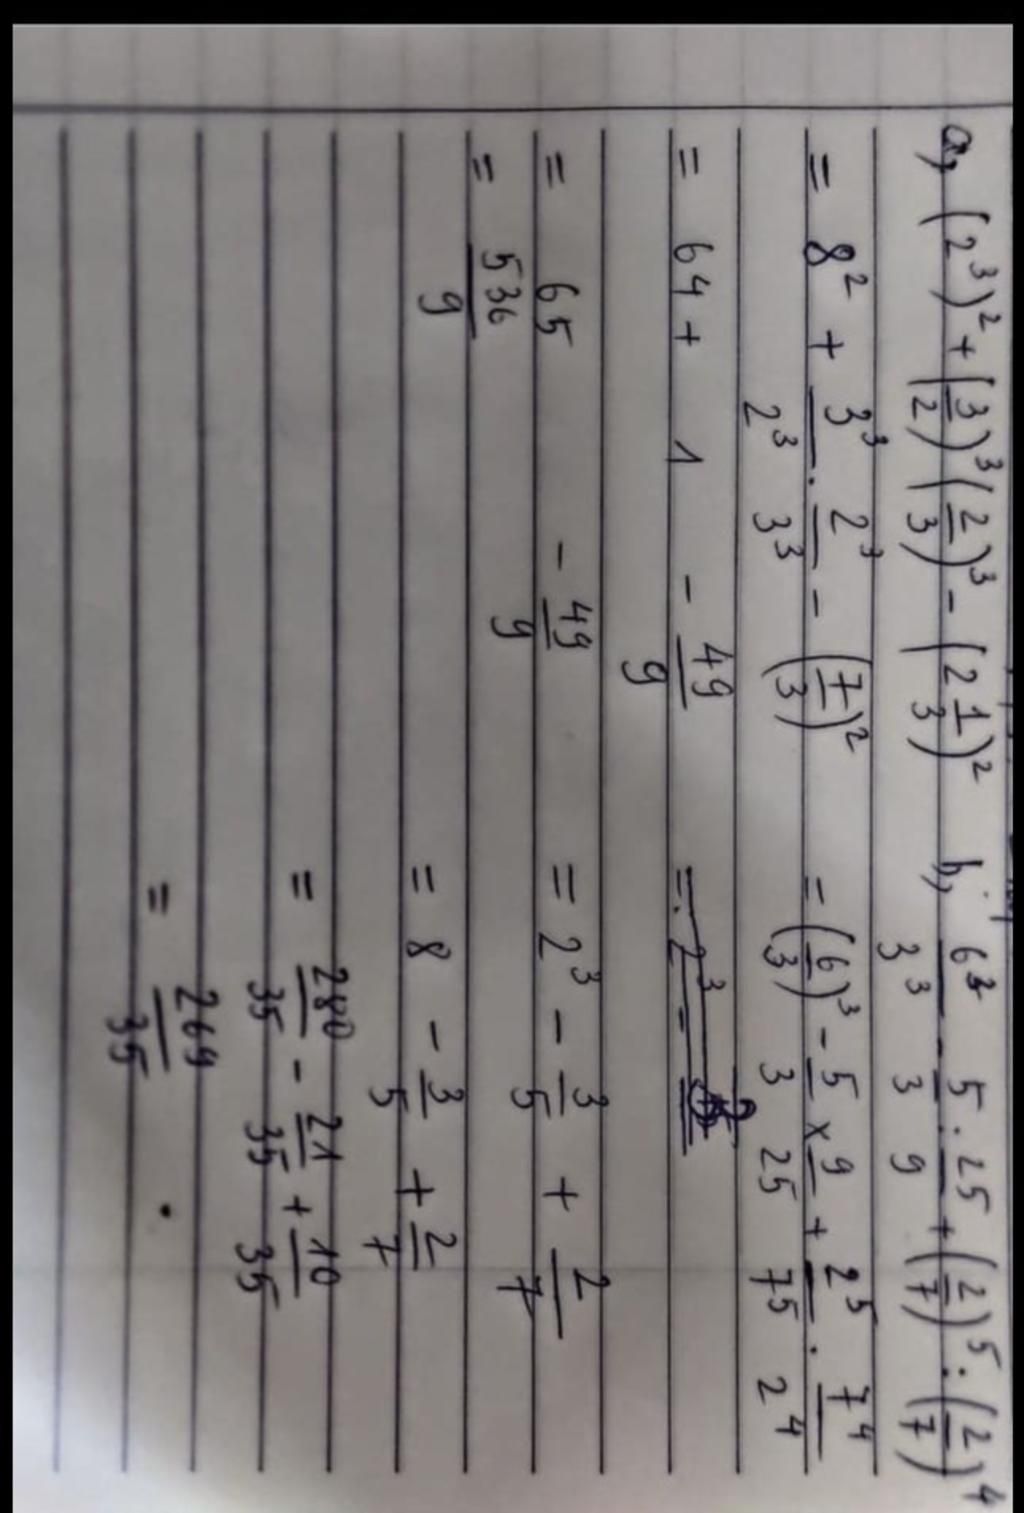 a, (2³)² + (3/2)³ (2/3)³ - (2 1/3)²
= 8² + 3³/2³ . 2³/3³ - (7/3)²
= 64 + 1 - 49/9
= 65 - 49/9
= 536/9
b, 6³/3³ - 5/3 : 25/9 + (2/7)⁵ : (2/7)⁴
= (6/3)³ - 5/3 x 9/25 + 2⁵/7⁵ . 7⁴/2⁴
= 2³ - 3/5 + 2/7
= 8 - 3/5 + 2/7
= 280/35 - 21/35 + 10/35
= 269/35